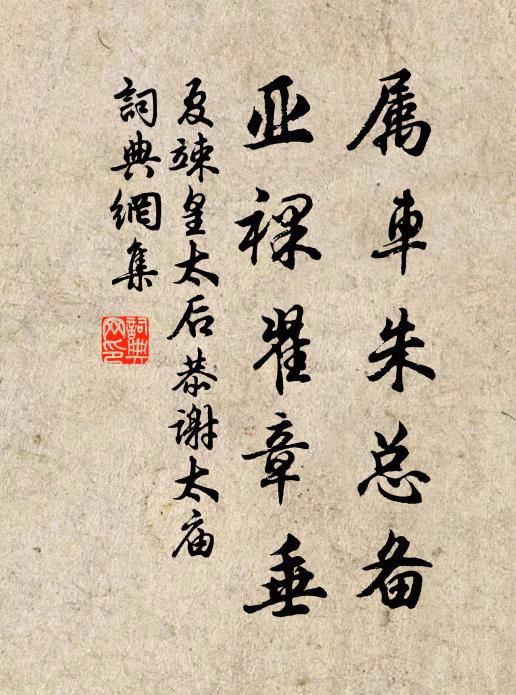 属車朱总备
亚裸翟章垂
夏竦皇太后恭谢太庙
詞典網集
詞典網印